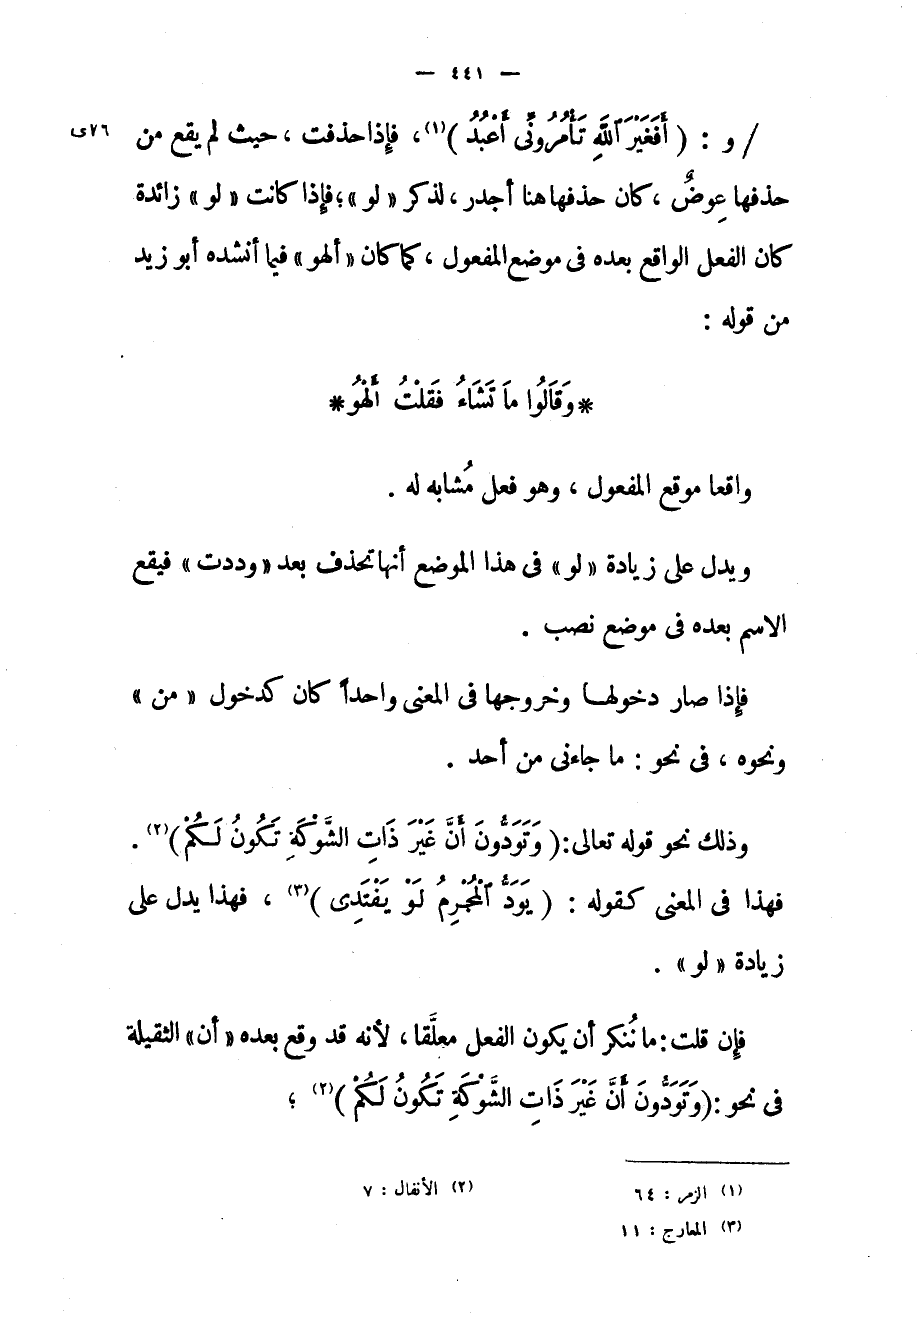 — ٤٤١ —
/ و : ( أَفَغَيْرَ ٱللَّهِ تَأْمُرُونِّى أَعْبُدُ )(١)، فإذا حذفت ، حيث لم يقع من ٧٦ى
حذفها عِوضٌ ، كان حذفها هنا أجدر ، لذكر « لو »؛ فإذا كانت « لو » زائدة
كان الفعل الواقع بعده فى موضع المفعول ، كما كان « ألهو » فيما أنشده أبو زيد
من قوله :
* وَقَالُوا مَا تَشَاءُ فَقلْتُ أَلْهُو *
واقعا موقع المفعول ، وهو فعل مُشابه له .
ويدل على زيادة « لو » فى هذا الموضع أنها تحذف بعد « وددت » فيقع
الاسم بعده فى موضع نصب .
فإذا صار دخولها وخروجها فى المعنى واحداً كان كدخول « من »
ونحوه ، فى نحو : ما جاءنى من أحد .
وذلك نحو قوله تعالى: ( وَتَوَدُّونَ أَنَّ غَيْرَ ذَاتِ الشَّوْكَةِ تَكُونُ لَكُمْ )(٢) .
فهذا فى المعنى كقوله : ( يَوَدُّ ٱلْمُجْرِمُ لَوْ يَفْتَدِى )(٣) ، فهذا يدل على
زيادة « لو » .
فإن قلت : ما نُنكر أن يكون الفعل معلَّقا ، لأنه قد وقع بعده « أن » الثقيلة
فى نحو : ( وَتَوَدُّونَ أَنَّ غَيْرَ ذَاتِ الشَّوْكَةِ تَكُونُ لَكُمْ )(٢) ؛
(١) الزمر : ٦٤ (٢) الأنفال : ٧
(٣) المعارج : ١١